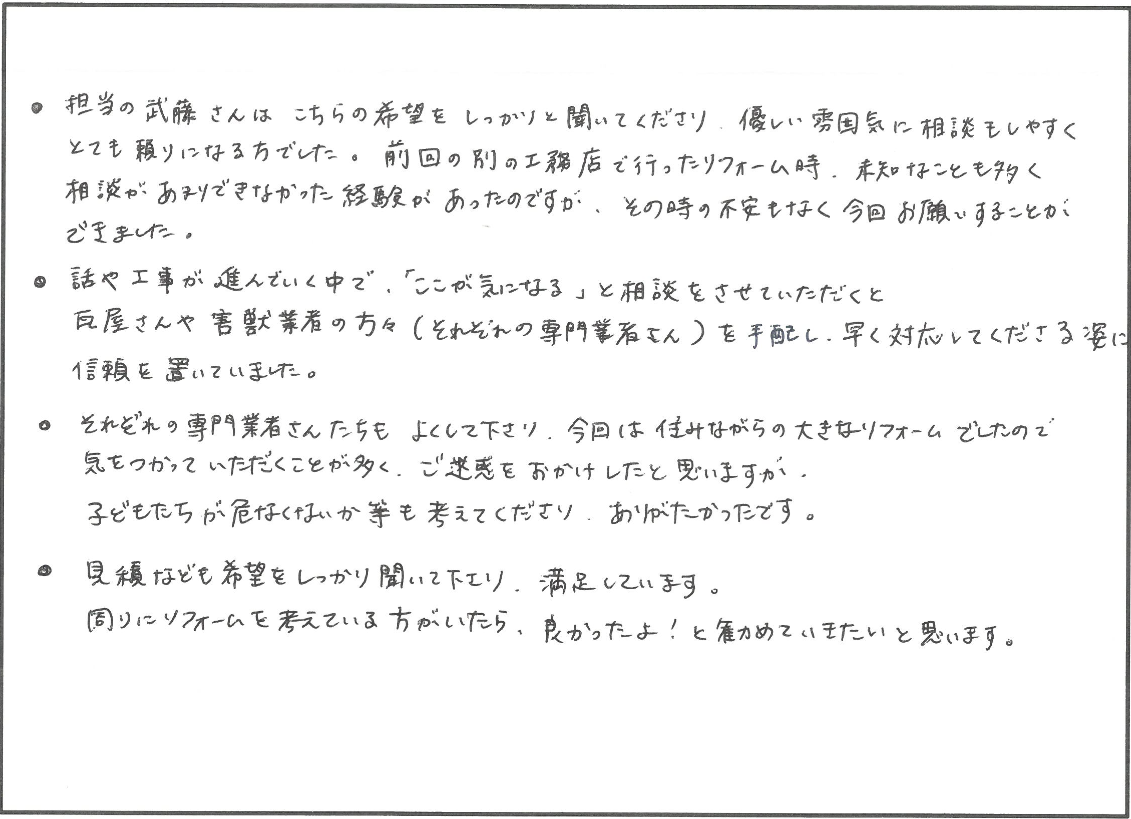 ● 担当の武藤さんは こちらの希望をしっかりと聞いてくださり、優しい雰囲気に相談もしやすく
とても頼りになる方でした。前回の別の工務店で行ったリフォーム時、未知なことも多く
相談があまりできなかった経験があったのですが、その時の不安もなく今回お願いすることが
できました。
● 話や工事が進んでいく中で、「ここが気になる」と相談をさせていただくと
瓦屋さんや害獣業者の方々(それぞれの専門業者さん)を手配し、早く対応してくださる姿に
信頼を置いていました。
● それぞれの専門業者さんたちも よくして下さり、今回は住みながらの大きなリフォームでしたので
気をつかっていただくことが多く、ご迷惑をおかけしたと思いますが、
子どもたちが危なくないか等も考えてくださり、ありがたかったです。
● 見積なども希望をしっかり聞いて下さり、満足しています。
周りにリフォームを考えている方がいたら、良かったよ!と勧めていきたいと思います。